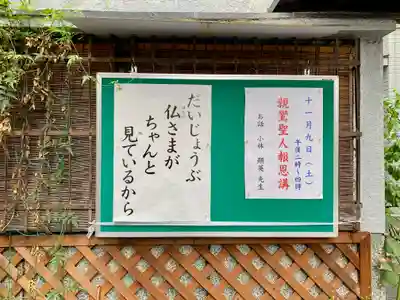 十一月九日（土）
午後二時〜四時
親鸞聖人報恩講
お話 小林 顕英 先生
だいじょうぶ
仏さまが
ちゃんと
見ているから